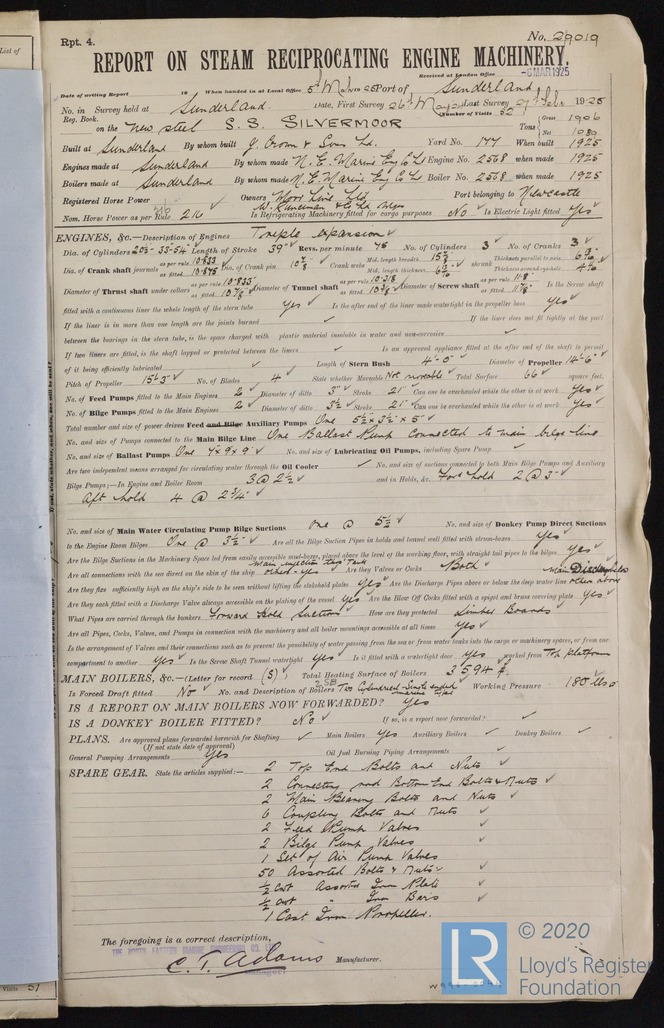 List of
Rpt. 4.
No. 29019
REPORT ON STEAM RECIPROCATING ENGINE MACHINERY.
Received at London Office -6 MAR 1925
Date of writing Report 19 When handed in at Local Office 5th Mar 1925 Port of Sunderland
No. in Survey held at Sunderland. Date, First Survey 26th May Last Survey 27th Feb 1925
Reg. Book. Number of Visits 52
on the new steel S. S. SILVERMOOR Tons { Gross 1906 Net 1080
Built at Sunderland By whom built J. Crown & Sons Ld. Yard No. 177 When built 1925
Engines made at Sunderland By whom made N. E. Marine Eng Co Ld Engine No. 2568 when made 1925
Boilers made at Sunderland By whom made N. E. Marine Eng Co Ld Boiler No. 2568 when made 1925
Registered Horse Power Owners Moor Line Ltd W. Runciman & Co Ld Mgrs Port belonging to Newcastle
Nom. Horse Power as per Rule 210 Is Refrigerating Machinery fitted for cargo purposes No Is Electric Light fitted Yes
ENGINES, &c.—Description of Engines Triple expansion
Dia. of Cylinders 20½-33-54 Length of Stroke 39" Revs. per minute 75 No. of Cylinders 3 No. of Cranks 3
Dia. of Crank shaft journals as per rule 10.833 as fitted 10.875 Dia. of Crank pin 10⅞ Crank webs Mid. length breadth 15⅝ Mid. length thickness 6¾ shrunk Thickness parallel to axis 6¾ Thickness around eye-hole 4¾
Diameter of Thrust shaft under collars as per rule 10.833 as fitted 10⅞ Diameter of Tunnel shaft as per rule 10.318 as fitted 10⅜ Diameter of Screw shaft as per rule 11.8 as fitted 11⅞ Is the Screw shaft
fitted with a continuous liner the whole length of the stern tube Yes Is the after end of the liner made watertight in the propeller boss Yes
If the liner is in more than one length are the joints burned If the liner does not fit tightly at the part
between the bearings in the stern tube, is the space charged with plastic material insoluble in water and non-corrosive
If two liners are fitted, is the shaft lapped or protected between the liners Is an approved appliance fitted at the after end of the shaft to permit
of it being efficiently lubricated Length of Stern Bush 4'-0" Diameter of Propeller 14'-6"
Pitch of Propeller 15'-3" No. of Blades 4 State whether Moveable Not movable Total Surface 66 square feet.
No. of Feed Pumps fitted to the Main Engines 2 Diameter of ditto 3" Stroke 21" Can one be overhauled while the other is at work Yes
No. of Bilge Pumps fitted to the Main Engines 2 Diameter of ditto 3½ Stroke 21" Can one be overhauled while the other is at work Yes
Total number and size of power driven Feed and Bilge Auxiliary Pumps One 5½ × 3½ × 5"
No. and size of Pumps connected to the Main Bilge Line One Ballast Pump Connected to main bilge line
No. and size of Ballast Pumps One 7 × 9 × 9" No. and size of Lubricating Oil Pumps, including Spare Pump
Are two independent means arranged for circulating water through the Oil Cooler No. and size of suctions connected to both Main Bilge Pumps and Auxiliary
Bilge Pumps;—In Engine and Boiler Room 3 @ 2½ and in Holds, &c. Fore hold 2 @ 3"
Aft hold 4 @ 2¾"
No. and size of Main Water Circulating Pump Bilge Suctions One @ 5½ No. and size of Donkey Pump Direct Suctions
to the Engine Room Bilges One @ 3½ Are all the Bilge Suction Pipes in holds and tunnel well fitted with strum-boxes Yes
Are the Bilge Suctions in the Machinery Space led from easily accessible mud-boxes, placed above the level of the working floor, with straight tail pipes to the bilges Yes
Are all connections with the sea direct on the skin of the ship others - Yes Are they Valves or Cocks Both
Are they fixed sufficiently high on the ship's side to be seen without lifting the stokehold plates Yes Are the Discharge Pipes above or below the deep water line Main Discharge others above
Are they each fitted with a Discharge Valve always accessible on the plating of the vessel Yes Are the Blow Off Cocks fitted with a spigot and brass covering plate Yes
What Pipes are carried through the bunkers Forward Hold Suctions How are they protected Limber Boards
Are all Pipes, Cocks, Valves, and Pumps in connection with the machinery and all boiler mountings accessible at all times Yes
Is the arrangement of Valves and their connections such as to prevent the possibility of water passing from the sea or from water tanks into the cargo or machinery spaces, or from one
compartment to another Yes Is the Screw Shaft Tunnel watertight Yes Is it fitted with a watertight door Yes worked from Top platform
MAIN BOILERS, &c.—(Letter for record (S)) Total Heating Surface of Boilers 3594 ft
Is Forced Draft fitted No No. and Description of Boilers 2 SB Two Cylindrical Single ended marine type Working Pressure 180 lbs
IS A REPORT ON MAIN BOILERS NOW FORWARDED? Yes
IS A DONKEY BOILER FITTED? No If so, is a report now forwarded?
PLANS. Are approved plans forwarded herewith for Shafting Main Boilers Yes Auxiliary Boilers Donkey Boilers
(If not state date of approval)
General Pumping Arrangements Yes Oil fuel Burning Piping Arrangements
SPARE GEAR. State the articles supplied:— 2 Top End Bolts and Nuts
2 Connecting rod Bottom End Bolts & Nuts
2 Main Bearing Bolts and Nuts
6 Coupling Bolts and Nuts
2 Feed Pump Valves
2 Bilge Pump Valves
1 Set of Air Pump Valves
50 Assorted Bolts & Nuts
½ cwt Assorted Iron Plate
½ cwt " Iron Bars
1 Cast Iron Propeller.
The foregoing is a correct description,
THE NORTH EASTERN MARINE ENGINEERING CO. LD
C. T. Adams Manufacturer.
Manager
Visits 51
LR
© 2020
Lloyd's Register
Foundation